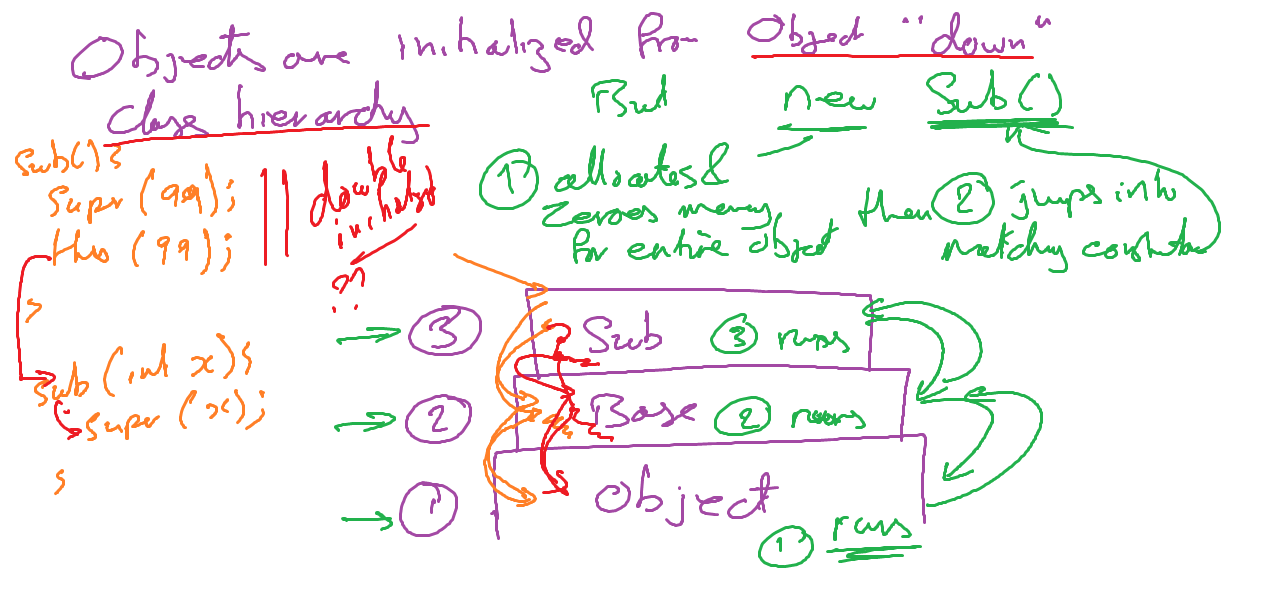 Objects are initialized from Object "down"
class hierarchy
But new Sub()
① allocates &
zeroes memory
for entire object
then ② jumps into
matching constructor
Sub() {
super (99);
this (99);
}
double
initialized
??
Sub (int x) {
super (x);
}
③ Sub ③ runs
② Base ② runs
① Object
① runs